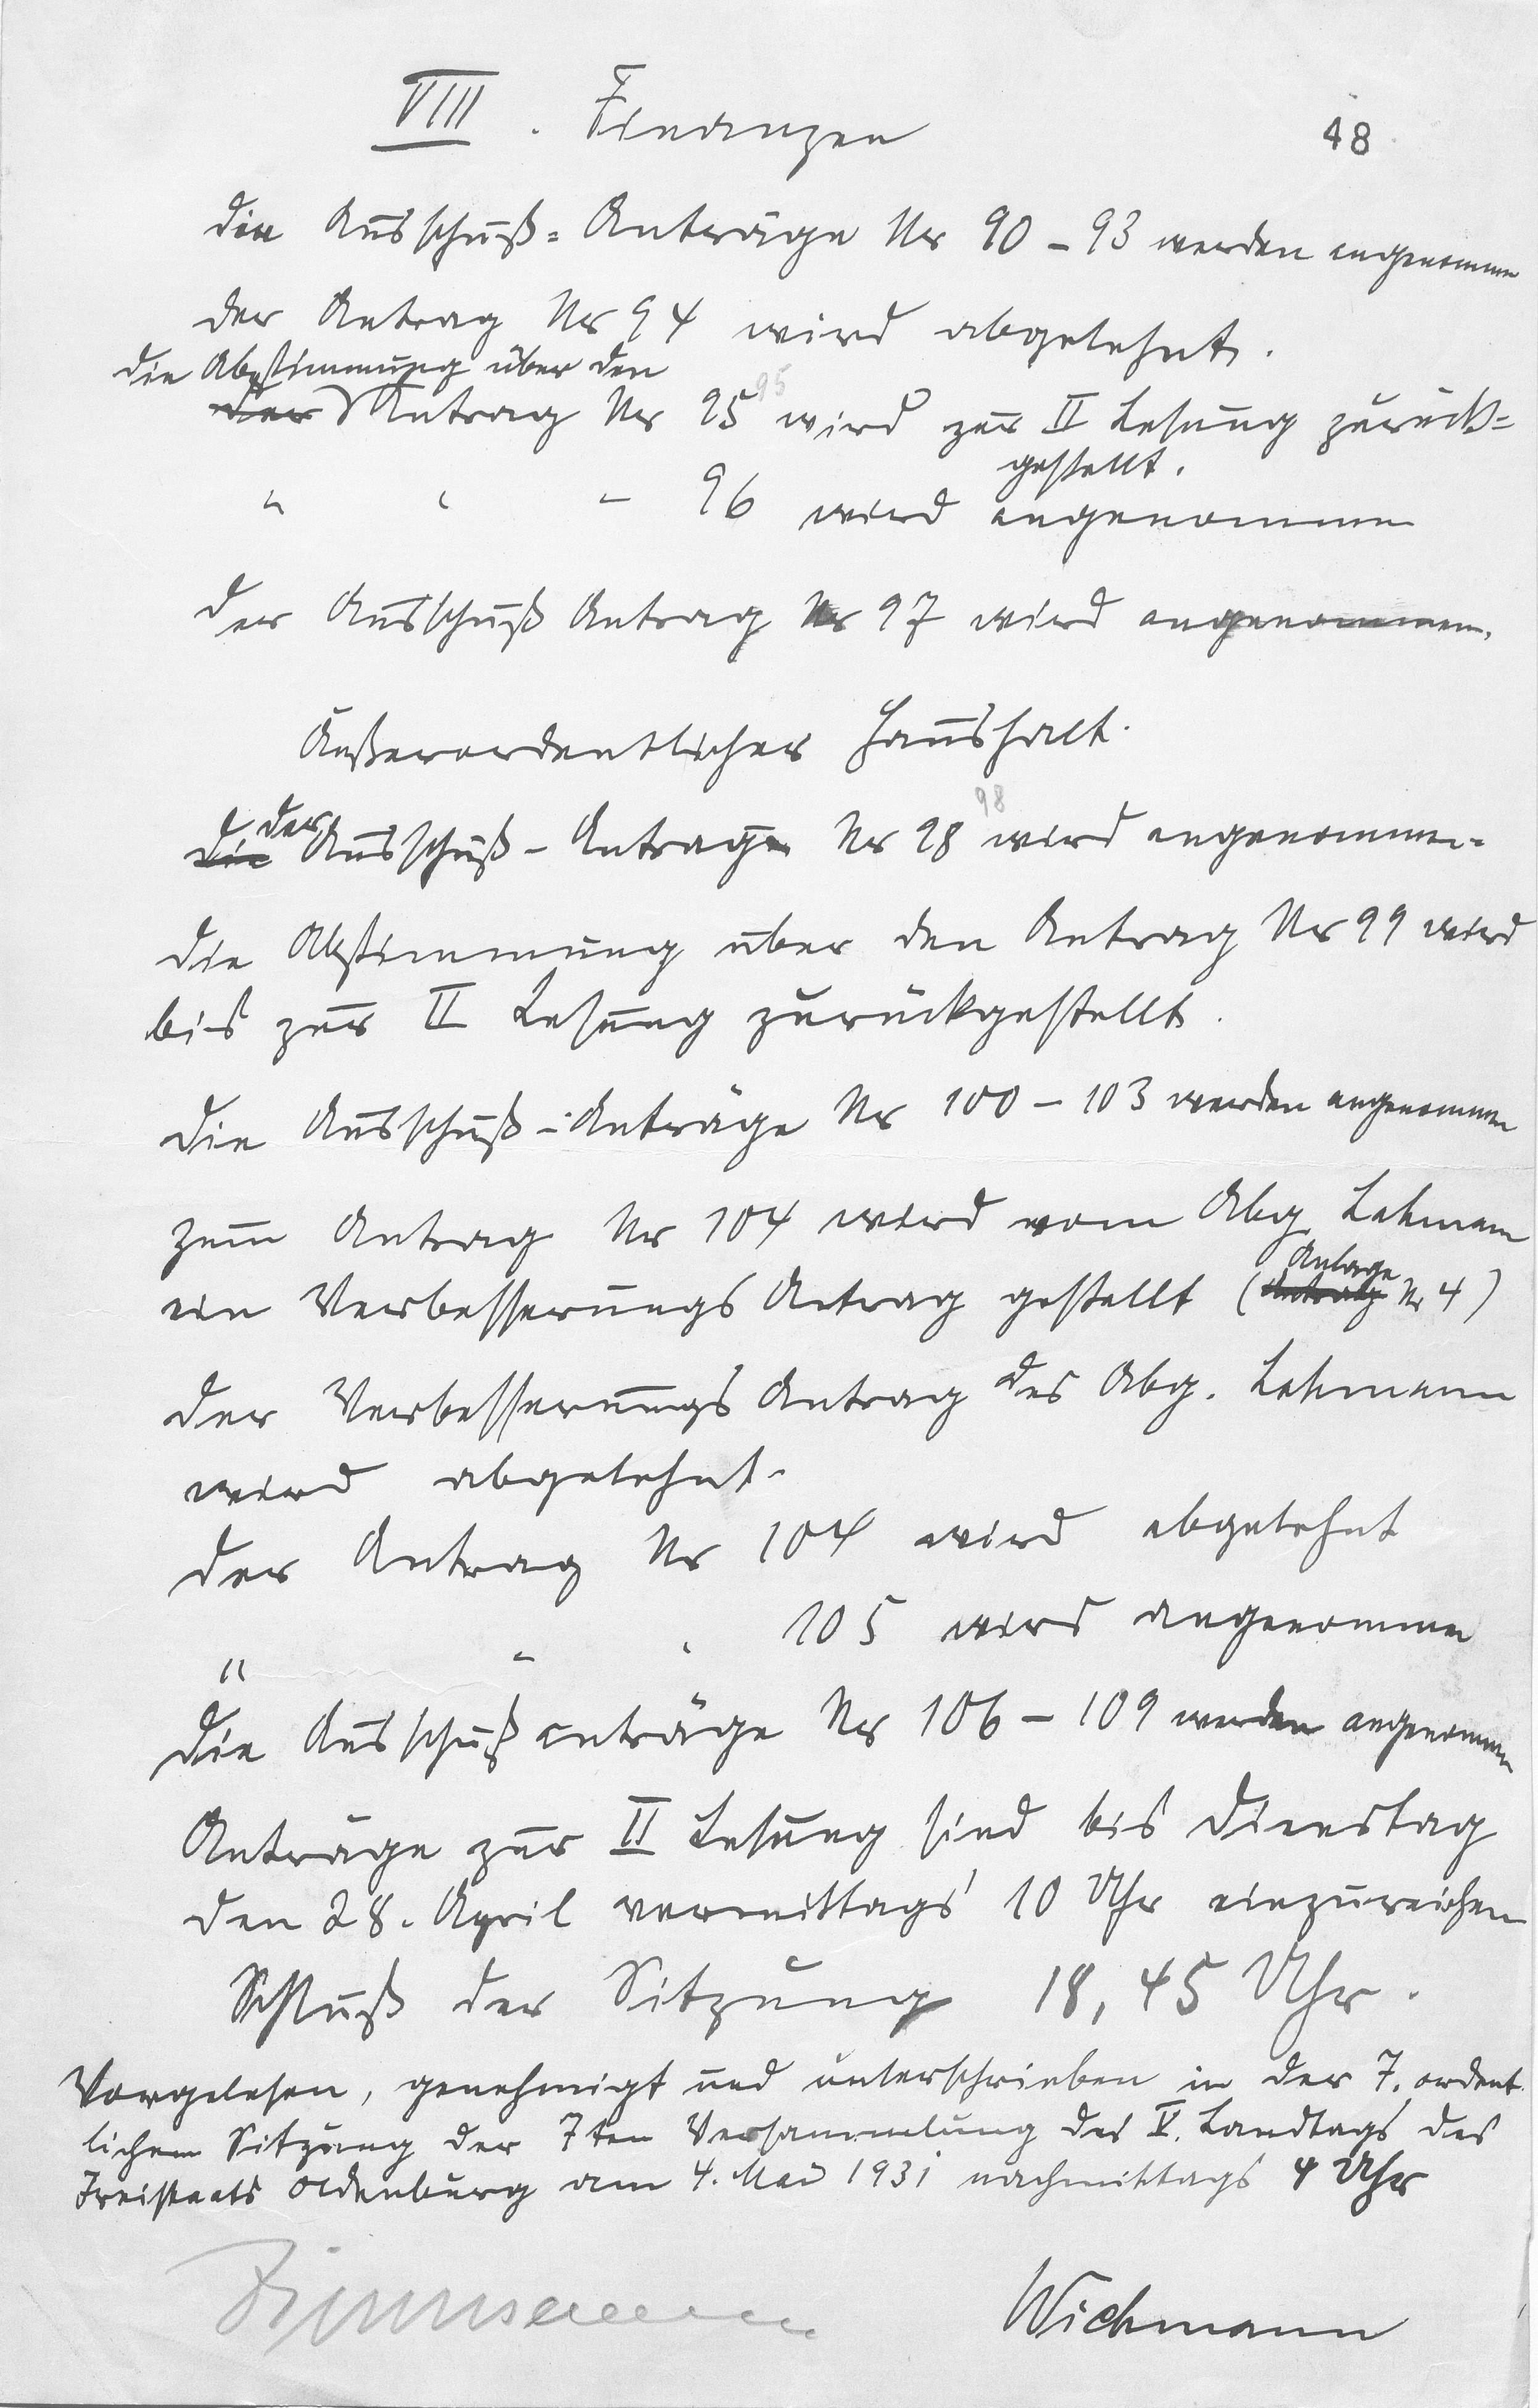 VIII. Finanzen
48
die Ausschuß=Anträge Nr 90 – 93 werden angenommen
der Antrag Nr 94 wird abgelehnt.
die Abstimmung über den
der Antrag Nr 95 95 wird zur II Lesung zurück=
gestellt.
" " " 96 wird angenommen
der Ausschuß Antrag Nr 97 wird angenommen.
Außerordentlicher Haushalt.
98
der
die Ausschuß-Antrage Nr 98 wird angenommen.
die Abstimmung über den Antrag Nr 99 wird
bis zur II Lesung zurückgestellt.
die Ausschuß-Anträge Nr 100 – 103 werden angenommen
zum Antrag Nr 104 wird vom Abg Lehmann
Anlage
ein Verbesserungs Antrag gestellt (Antrag Nr 4)
der Verbesserungs Antrag des Abg. Lehmann
wird abgelehnt.
der Antrag Nr 104 wird abgelehnt
" " " 105 wird angenommen
die Ausschußanträge Nr 106 – 109 werden angenommen
Anträge zur II Lesung sind bis Dienstag
den 28. April vormittags 10 Uhr einzureichen
Schluß der Sitzung 18,45 Uhr.
Vorgelesen, genehmigt und unterschrieben in der 7. ordent
lichen Sitzung der 7ten Versammlung des V. Landtags des
Freistaats Oldenburg am 4. Mai 1931 nachmittags 4 Uhr
Wichmann